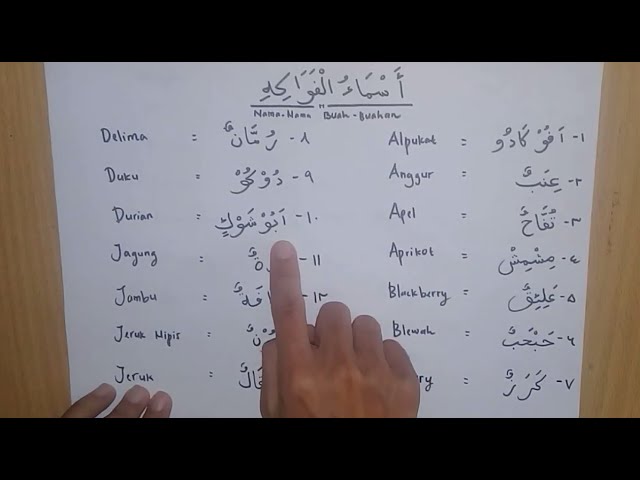 أَسْمَاءُ الْفَوَاكِهِ
"Nama-Nama Buah-Buahan"
Alpukat = ١- اَفُوْكَادُو
Anggur = ٢- عِنَبٌ
Apel = ٣- تُفَّاحٌ
Aprikot = ٤- مِشْمِشْ
Blackberry = ٥- عَلِيْقٌ
Blewah = ٦- حَبْحَبٌ
= ٧- كَرَزٌ
Delima = ٨- رُمَّانٌ
Duku = ٩- دُوْكُوْ
Durian = ١٠- اَبُوْ شَوْكٍ
Jagung = ١١-
Jambu = ١٢-
Jeruk Nipis =
Jeruk =